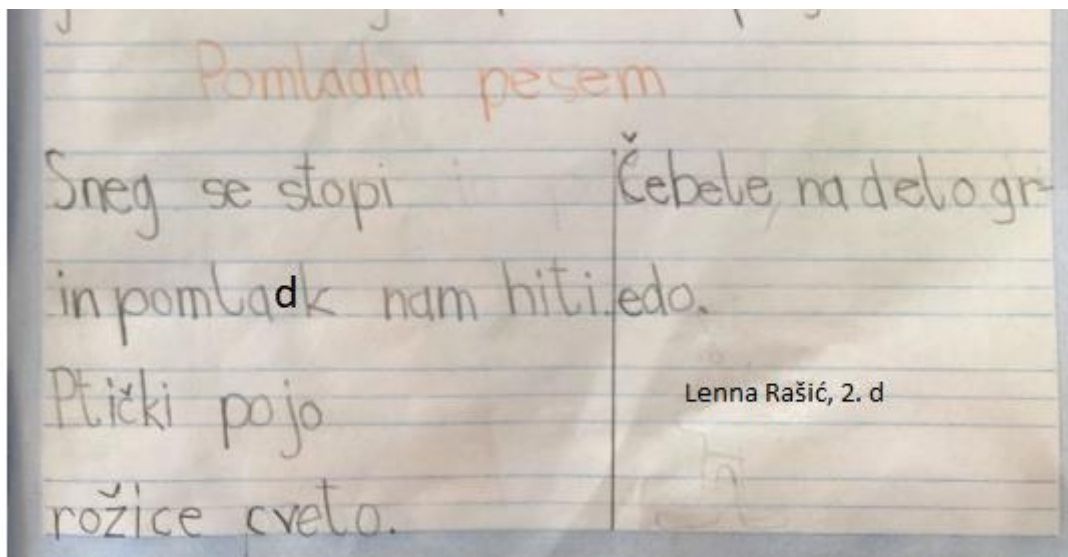 Pomladna pesem
Sneg se stopi
in pomladk nam hiti.
Ptički pojo
rožice cveto.
Čebele na delo gr-
edo.
Lenna Rašić, 2. d